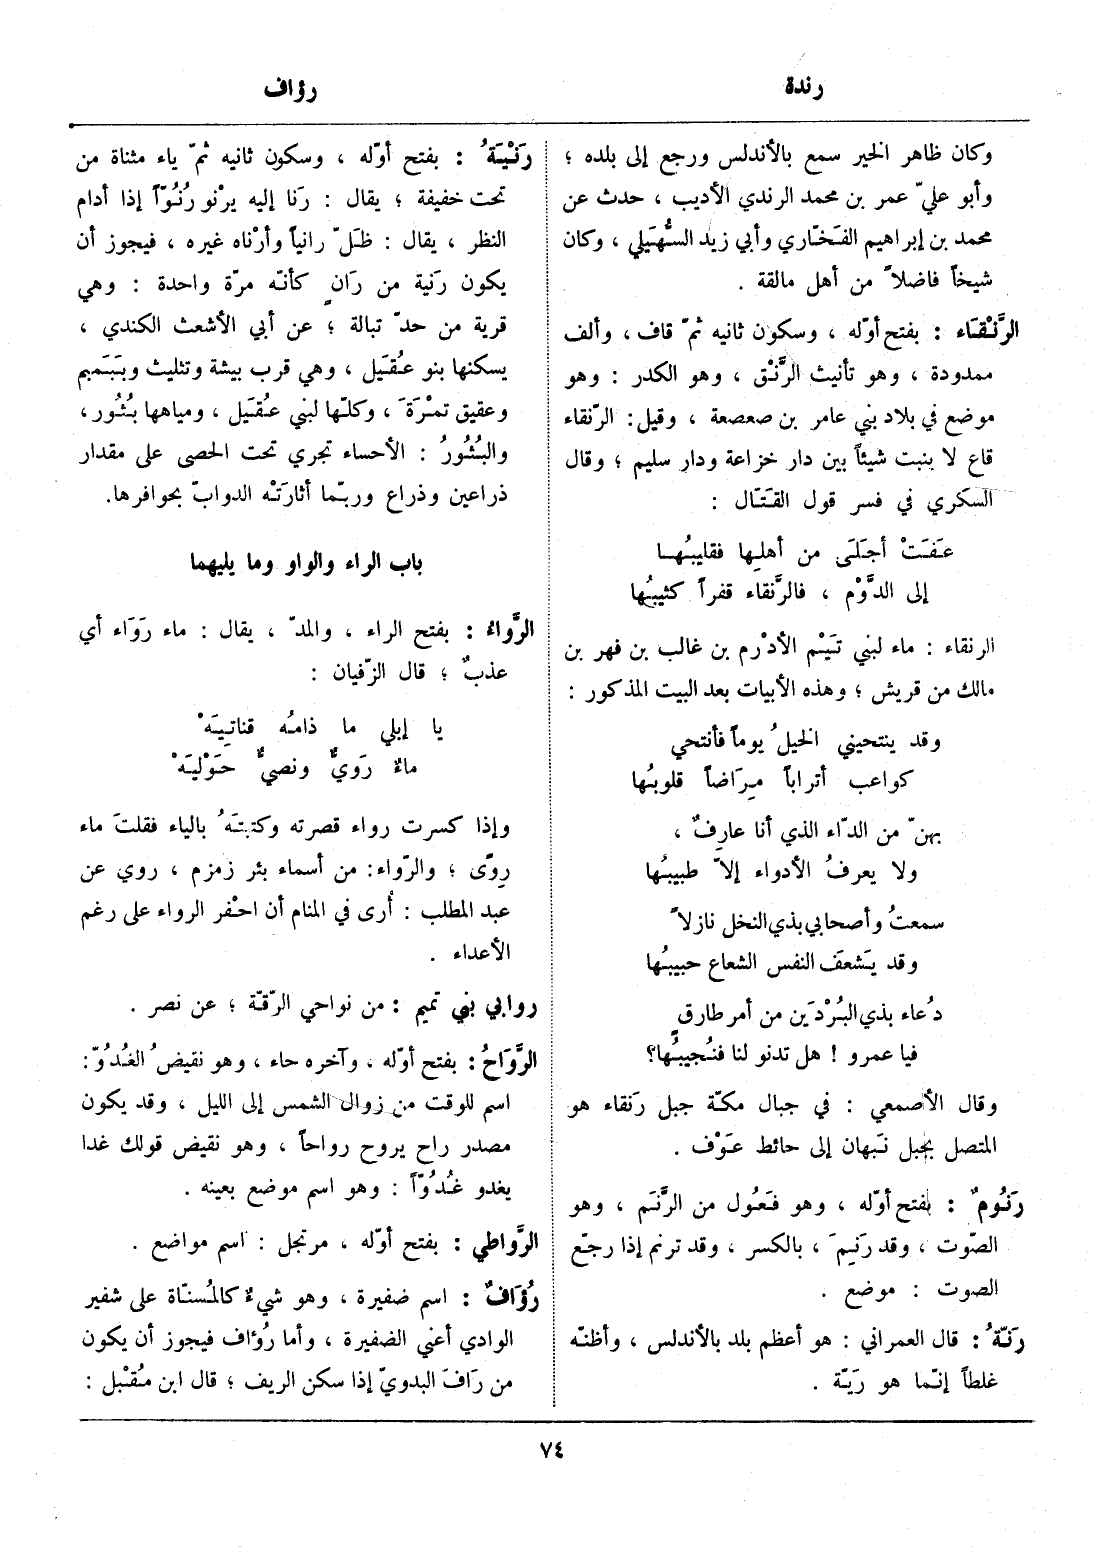 رندة
رؤاف
وكان ظاهر الخير سمع بالأندلس ورجع إلى بلده ؛
وأبو عليّ عمر بن محمد الرندي الأديب ، حدث عن
محمد بن إبراهيم الفَخّاري وأبي زيد السُّهَيلي ، وكان
شيخاً فاضلاً من أهل مالقة .
الرَّنْقَاء : بفتح أوّله ، وسكون ثانيه ثمّ قاف ، وألف
ممدودة ، وهو تأنيث الرَّنْق ، وهو الكدر : وهو
موضع في بلاد بني عامر بن صعصعة ، وقيل : الرّنقاء
قاع لا ينبت شيئاً بين دار خزاعة ودار سليم ؛ وقال
السكري في فسر قول القَتّال :
عَفَتْ أَجَلَى من أهلِها فقليبُها
إلى الدَّوْم ، فالرَّنقاء قفراً كثيبُها
الرنقاء : ماء لبني تَيْم الأدْرم بن غالب بن فهر بن
مالك من قريش ؛ وهذه الأبيات بعد البيت المذكور :
وقد ينتحيني الخيلُ يوماً فأنتحي
كواعب أتراباً مِرَاضاً قلوبُها
بهنّ من الدّاء الذي أنا عارِفٌ ،
ولا يعرفُ الأدواء إلاّ طبيبُها
سمعتُ وأصحابي بذي النخل نازلاً
وقد يَشعَفَ النفس الشعاع حبيبُها
دُعاء بذي البُرْدَين من أمر طارقٍ
فيا عمرو ! هل تدنو لنا فنُجيبُها؟
وقال الأصمعي : في جبال مكّة جبل رَنقاء هو
المتصل بجبل نَبهان إلى حائط عَوْف .
رَنُومٌ : بفتح أوّله ، وهو فَعُول من الرَّنَم ، وهو
الصّوت ، وقد رَنِيمَ ، بالكسر ، وقد ترنم إذا رجّع
الصوت : موضع .
رَنّةُ : قال العمراني : هو أعظم بلد بالأندلس ، وأظنّه
غلطاً إنّما هو رَيّة .
رَنْيَةُ : بفتح أوّله ، وسكون ثانيه ثمّ ياء مثناة من
تحت خفيفة ؛ يقال : رَنا إليه يرْنو رُنُوّاً إذا أدام
النظر ، يقال : ظلّ رانياً وأرْناه غيره ، فيجوز أن
يكون رَنية من رَانٍ كأنّه مرّة واحدة : وهي
قرية من حدّ تبالة ؛ عن أبي الأشعث الكندي ،
يسكنها بنو عُقَيل ، وهي قرب بيشة وتثليث ويَبَمبم
وعقيق تمْرَةَ ، وكلّها لبني عُقَيل ، ومياهها بُثُور ،
والبُثُورُ : الأحساء تجري تحت الحصى على مقدار
ذراعين وذراع وربّما أثارَتْه الدوابّ بحوافرها.
باب الراء والواو وما يليهما
الرَّوَاءُ : بفتح الراء ، والمدّ ، يقال : ماء رَوَاء أي
عذبٌ ؛ قال الزّفيان :
يا إبلي ما ذامُه قناتِيَهْ
ماءٌ رَويٌّ ونصيٌّ حَوْلِيَهْ
وإذا كسرت رواء قصرته وكتبتَهُ بالياء فقلتَ ماء
رِوًى ؛ والرّواء: من أسماء بئر زمزم ، روي عن
عبد المطلب : أُرى في المنام أن احْفر الرواء على رغم
الأعداء .
روابي بني تميم : من نواحي الرّقّة ؛ عن نصر .
الرَّوَاحُ : بفتح أوّله ، وآخره حاء ، وهو نقيضُ الغُدُوّ :
اسم للوقت من زوال الشمس إلى الليل ، وقد يكون
مصدر راح يروح رواحاً ، وهو نقيض قولك غدا
يغدو غُدُوّاً : وهو اسم موضع بعينه .
الرَّواطي : بفتح أوّله ، مرتجل : اسم مواضع .
رُؤَافٌ : اسم ضفيرة ، وهو شيءٌ كالمُسنّاة على شفير
الوادي أعني الضفيرة ، وأما رُؤاف فيجوز أن يكون
من رَافَ البدويّ إذا سكن الريف ؛ قال ابن مُقْبل :
٧٤